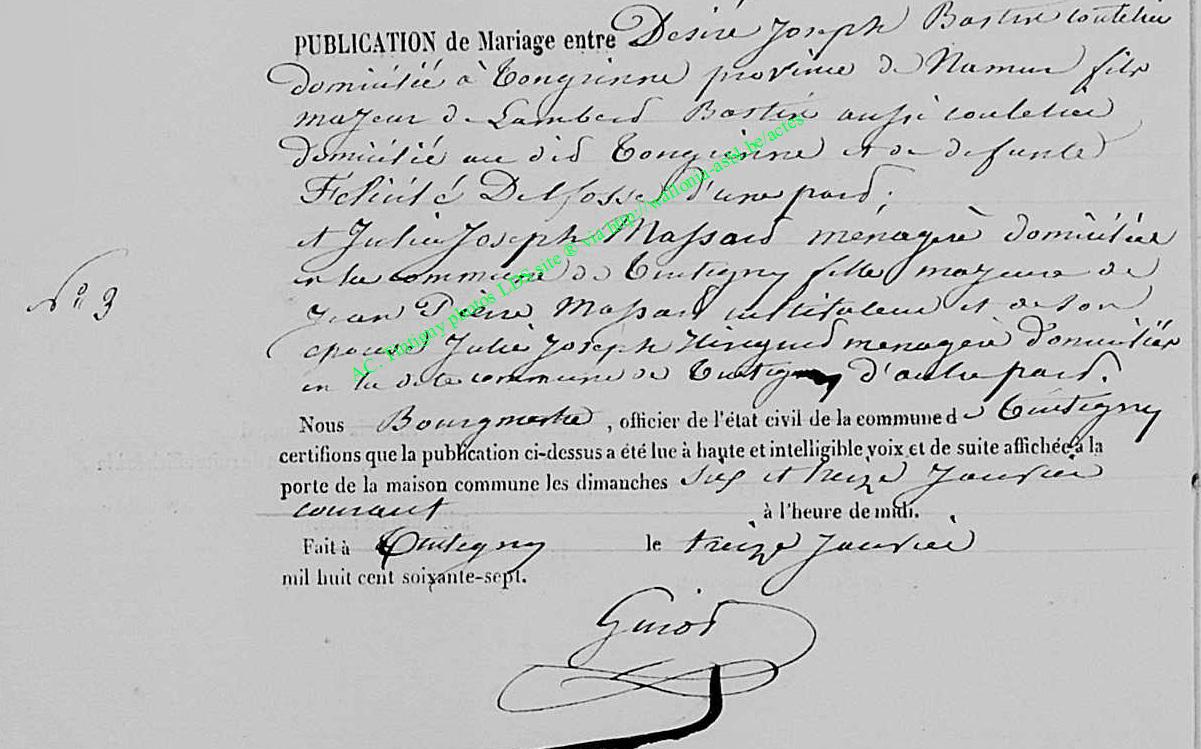 PUBLICATION de Mariage entre Desiré Joseph Bastin coutelier
domicilié à Tongrinne province de Namur fils
majeur de Lamberd Bastin aussi coutelier
domicilié au did Tongrinne et de defunte
Félicité Delfosse d'une pard;
et Julie Joseph Massard ménagère domiciliée
en la commune de Tintigny fille majeure de
N° 3
Jean Pierre Massard instituteur et de son
epouse Julie Joseph menagère domiciliée
en la dite commune de Tintigny d'autre pard.
Nous Bourgmestre, officier de l'état civil de la commune de Tintigny
certifions que la publication ci-dessus a été lue à haute et intelligible voix et de suite affichée à la
porte de la maison commune les dimanches six et treize Janvier
courant à l'heure de midi.
Fait à Tintigny le treize Janvier
mil huit cent soixante-sept.
AC. Tintigny photos LDS site @ via http://wallonia-asbl.be/actes